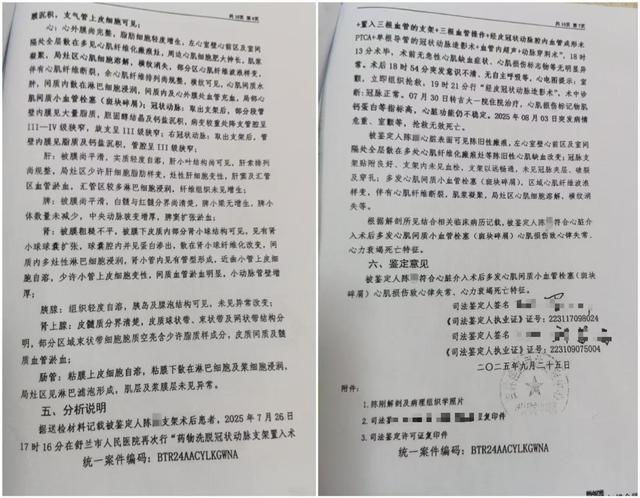 共10页 第6页
膜沉积，支气管上皮细胞可见；
心：心外膜完整，脂肪细胞轻度增生，左心室壁心前区及室间
隔处全层散在多灶心肌纤维化瘢痕灶，周边心肌细胞肥大伸长，肌浆
凝聚，局灶区心肌细胞溶解，横纹消失，部分区心肌纤维波浪样变，
伴有肌纤维断裂，余心肌纤维排列尚规整，横纹可见，心肌间质水
肿，间质内散在淋巴细胞浸润，间质内及心外膜处血管充血，局部心
肌间质小血管栓塞（斑块碎屑）；冠状动脉：取出支架后，部分段管
壁内膜见大量脂质，胆固醇结晶及钙盐沉积，病变较重处终支管腔呈
III—IV级狭窄，旋支呈III级狭窄；右冠状动脉：取出支架后，管
壁内膜见脂质及钙盐沉积，管腔呈III级狭窄；
肝：被膜尚平滑，实质轻度自溶，肝小叶结构尚可见，肝索排列
尚规整，局灶区少许肝细胞脂肪样变，灶性肝细胞变性，肝窦及汇管
区血管淤血，汇管区较多淋巴细胞浸润，纤维组织未见增生；
脾：被膜尚平滑，白髓与红髓分界尚清楚，脾小梁无增生，脾小
体数量未减少，中央动脉玻变增厚，脾窦扩张淤血；
肾：被膜粗糙不平，被膜下皮质内部分肾小球结构可见，见有肾
小球球囊扩张，球囊腔内并见蛋白渗出，数在肾小球纤维化改变，间
质内多灶性淋巴细胞浸润，肾小管内见有管型形成，近曲小管上皮细
胞自溶，少许小管上皮细胞变性，间质血管淤血明显，小动脉管壁增
厚；
胰腺：组织轻度自溶，胰岛及腺泡结构可见，未见异常改变；
肾上腺：皮髓质分界清楚，皮质球状带、束状带及网状带结构分
明，部分区域束状带细胞胞质空亮含少许脂质样成分，皮质间质及髓
质血管淤血；
肠管：粘膜上皮细胞自溶，粘膜下散在淋巴细胞及浆细胞浸润，
局灶区见淋巴滤泡形成，肌层及浆膜层未见异常。
五、分析说明
据送检材料记载被鉴定人陈 支架术后患者，2025年7月26日
17时16分在舒兰市人民医院再次行“药物洗脱冠状动脉支架置入术
统一案件编码：BTR24AACYLKGWNA
共10页 第7页
+置入三根血管的支架+三根血管操作+经皮冠状动脉腔内血管成形术
PTCA+单根导管的冠状动脉造影术+血管内超声+动脉穿刺术”，18时
13分术毕，术前无急性心肌缺血症状、心肌损伤标志物等无明显异
常。术后18时54分突发意识不清、无自主呼吸等，心电图提示：室
颤，立即组织抢救，19时21分行“经皮冠状动脉造影术”，术中诊
断：冠脉正常。07月30日转吉大一院住治疗，心肌损伤标记物肌
钙蛋白等指标高，心脏功能仍不稳定。2025年08月03日突发病情
危重、室颤等，抢救无效死亡。
被鉴定人陈 心表面可见陈旧性瘢痕，左心室壁心前区及室间
隔处全层散在多处心肌纤维化瘢痕灶等陈旧性心肌缺血改变；冠脉支
架贴附良好、支架内未见血栓、支架以远畅通，未见冠脉夹层、破裂
及穿孔；多发心肌间质小血管栓塞（斑块碎屑），区域心肌纤维波浪
样变，伴有心肌纤维断裂，肌浆凝聚，局灶区心肌细胞溶解，横纹
消失等。
根据解剖所见结合相关临床病历记载，被鉴定人陈 符合心脏介
入术后多发心肌间质小血管栓塞（斑块碎屑）心肌损伤致心律失常、
心力衰竭死亡特征。
六、鉴定意见
被鉴定人陈 符合心脏介入术后多发心肌间质小血管栓塞（斑块
碎屑）心肌损伤致心律失常、心力衰竭死亡特征。
司法鉴定人签名
《司法鉴定人执业证》证号：223117098024
司法鉴定人签名
《司法鉴定人执业证》证号：223109075004
二〇二五年九月二十五日
附件：
1.陈刚解剖及病理组织学照片
2. 复印件
3.司法鉴定许可证复印件
统一案件编码：BTR24AACYLKGWNA